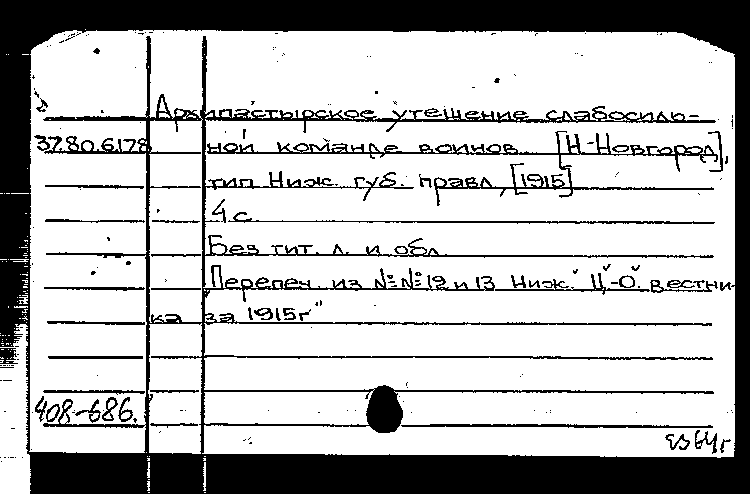 Архипастырское утешение слабосиль-
37.80.6.178 ной команде воинов. [Н-Новгород],
тип Ниж. губ. правл, [1915]
4 с.
Без тит. л. и обл.
"Перепеч. из №№ 12 и 13 Ниж. Ц.-О. вестни-
ка за 1915г"
408-686.